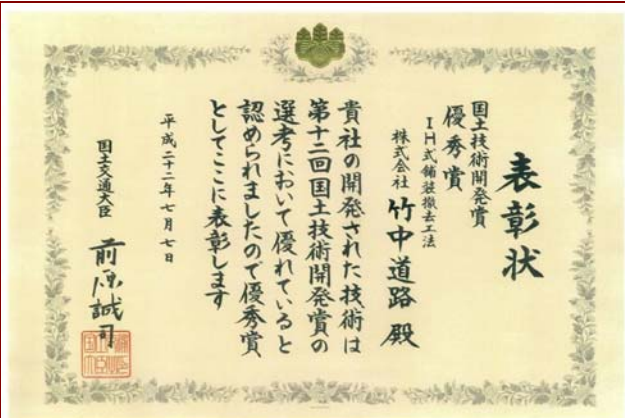 表彰状
国土技術開発賞
優秀賞
IH式舗装撤去工法
株式会社 竹中道路 殿
貴社の開発された技術は
第十二回国土技術開発賞の
選考において優れていると
認められましたので優秀賞
としてここに表彰します
平成二十二年七月七日
国土交通大臣 前原誠司